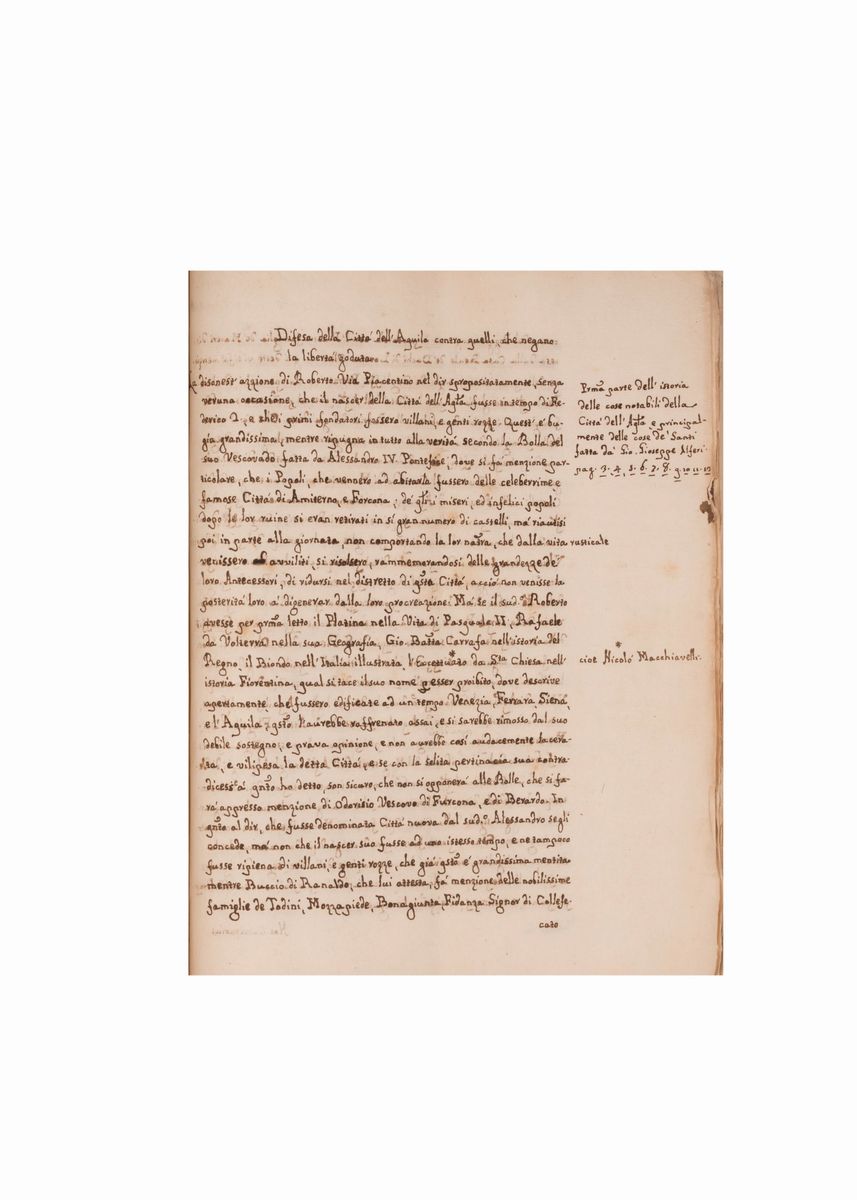 Difesa della Città dell'Aquila contra quelli, che negano
la libertà goduta
La disonest'azzione di Roberto Via Piacentino nel dir spropositatamente, senza
veruna occasione, che il nascer della Città dell'Aqla fusse in tempo di Fe-
derico I, e che i primi fondatori fossero villani, e genti rozze. Quest'è bu-
gia grandissima, mentre ripugna in tutto alla verità secondo la Bolla del
suo Vescovado fatta da Alessandro IV. Pontefice, dove si fa menzione par-
ticolare, che i Popoli, che vennero ad abitarla fussero delle celeberrime e
famose Città di Amiterno, e Forcona; de gli miseri, ed infelici popoli
dopo le lor ruine si eran retirati in sì gran numero di castelli, mà riavutisi
poi in parte alla giornata, non comportando la lor natra, che dalla vita rusticale
venissero avviliti, si risolsero, rammemorandosi delle grandezze de'
loro Antecessori, di ridursi nel distretto di qsta Città, acciò non venisse la
posterità loro à digenerar dalla loro procreazione. Mà se il sud.o Roberto
avesse per prma letto il Platina nella Vita di Pasquale II, Rafaele
da Volterra nella sua Geografia, Gio. Batta Carrafa nell'istoria del
Regno, il Biondo nell'Italia illustrata, l'Eccettuato* da Sta Chiesa nell'
istoria Fiorentina, qual si tace il suo nome p esser proibito, dove descrive
apertamente, che fussero edificate ad un tempo Venezia, Ferrara, Siena,
e l'Aquila, qsto l'aurebbe raffrenato assai, e si sarebbe rimosso dal suo
debile sostegno, e prava opinione, e non aurebbe così audacemente lacera-
ta, e vilipesa la detta Città, e se con la solita pertinacia sua contra
dicesse à qnto ho detto, son sicuro, che non si opponerà alle Bolle, che si fa-
rà appresso menzione di Odorisio Vescovo di Furcona, e di Berardo. In
qnto al dir, che fusse denominata Città nuova dal sud.o Alessandro se gli
concede, mà non che il nascer suo fusse ad uno istesso tempo, e ne tampoco
fusse rigiena di villani, e genti rozze, che già qsto è grandissima mentita
mentre Buccio di Ranaldo, che lui attesta, fà menzione delle nobilissime
famiglie de Todini, Mozzapiede, Bonagiunta, Fidanza Signor di Collese-
cato
Prma parte dell'istoria
delle cose notabili della
Città dell'Aqla e principal-
mente delle cose de' Santi
fatta da Gio. Gioseppe Alferi
pag. 3. 4. 5. 6. 7. 8. 9. 10. 11. 12
*
cioè Nicolò Macchiavelli.